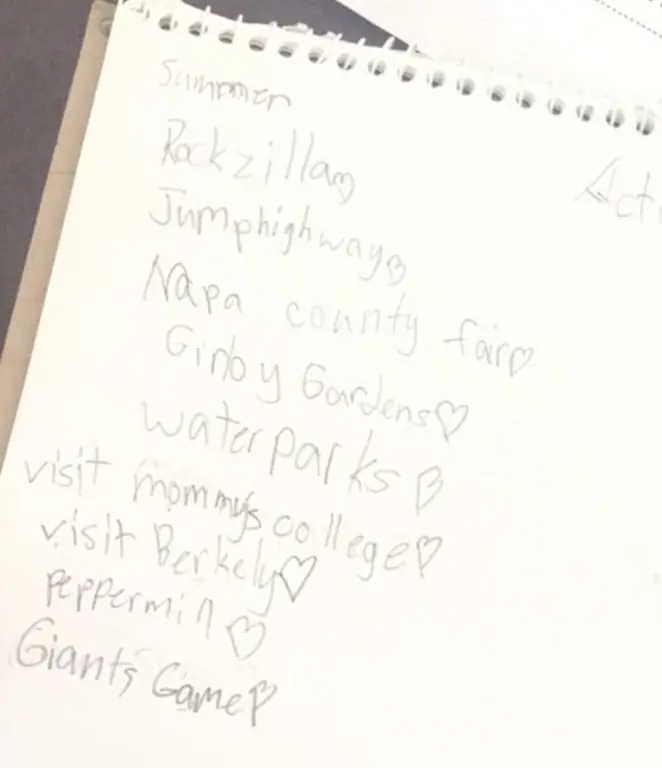 Summer
Rockzilla♡
Jumphighway♡
Napa county fair♡
Ginby Gardens♡
waterparks♡
visit mommy's college♡
visit Berkely♡
peppermin♡
Giants Game♡
Acti